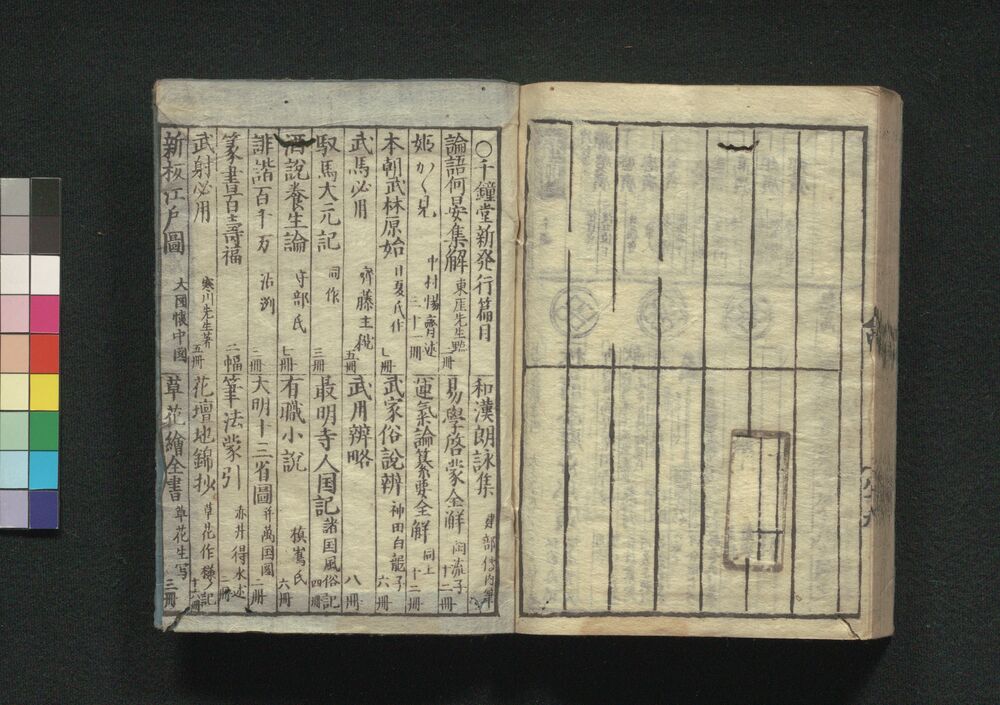 ○千鐘堂新発行篇目
和漢朗詠集 建部傳内筆
論語何晏集解 東崖先生點 冊
易學啓蒙全解 十二冊
姫かゝ見 中村惕齋述 三十一冊
運氣論纂要全解 同上 十二冊
本朝武林原始 日夏氏作 七冊
武家俗説辨 神田白龍子 六冊
武馬必用 齊藤主税 五冊
武用辨略 八冊
馭馬大元記 同作 三冊
最明寺人国記 諸国風俗記 四冊
酒説養生論 守部氏 七冊
有職小説 槙嶌氏 六冊
誹諧百千万 沾洲 二冊
大明十三省圖 并萬国圖 二冊
篆書百壽百福 二幅
筆法蒙引 赤井得水述 二冊
武射必用 寒川先生著 五冊
花壇地錦抄 草花作様ノ記 十六冊
新板江戸圖 大圖懐中圖
草花繪全書 草花生写 三冊